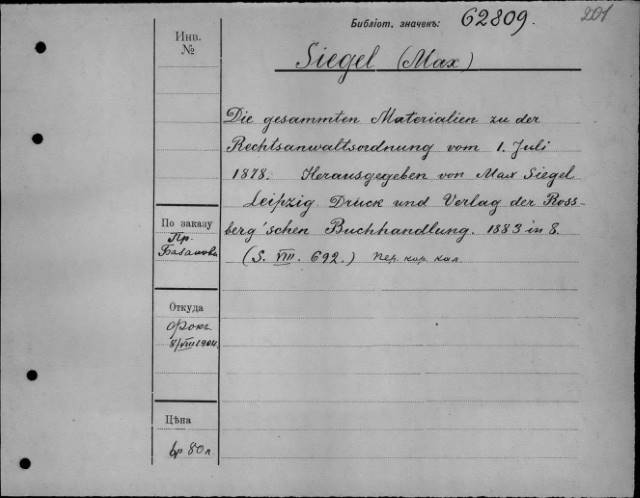 Библіот. значекъ: 62809.
201
Инв.
№
Siegel (Max)
Die gesammten Materialien zu der
Rechtsanwaltsordnung vom 1. Juli
1878. Herausgegeben von Max Siegel
Leipzig. Druck und Verlag der Ross-
berg'schen Buchhandlung. 1883 in 8.
(S. VIII. 692.) Пер. кор. кал.
По заказу
Пр.
Откуда
8/VIII 1904.
Цѣна
80